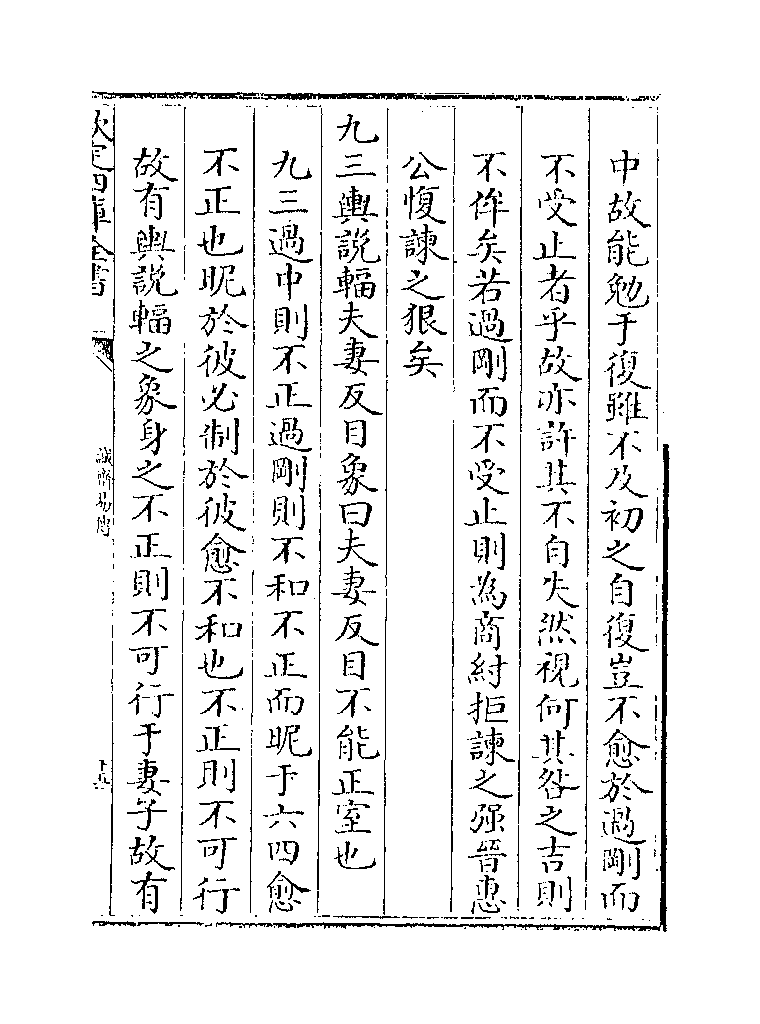 中故能勉于復雖不及初之自復豈不愈於過剛而
不受止者乎故亦許其不自失然視何其咎之吉則
不侔矣若過剛而不受止則為商紂拒諫之强晉惠
公愎諫之狠矣
九三輿説輻夫妻反目象曰夫妻反目不能正室也
九三過中則不正過剛則不和不正而昵于六四愈
不正也昵於彼必制於彼愈不和也不正則不可行
故有輿説輻之象身之不正則不可行于妻子故有
欽定四庫全書
誠齋易傳